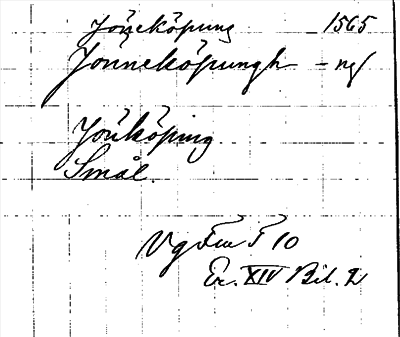 Jöneköpung 1565
Jönneköpungh - ng
Jönköping
Smål.
Vg 10
Er. XIV Bil. 2